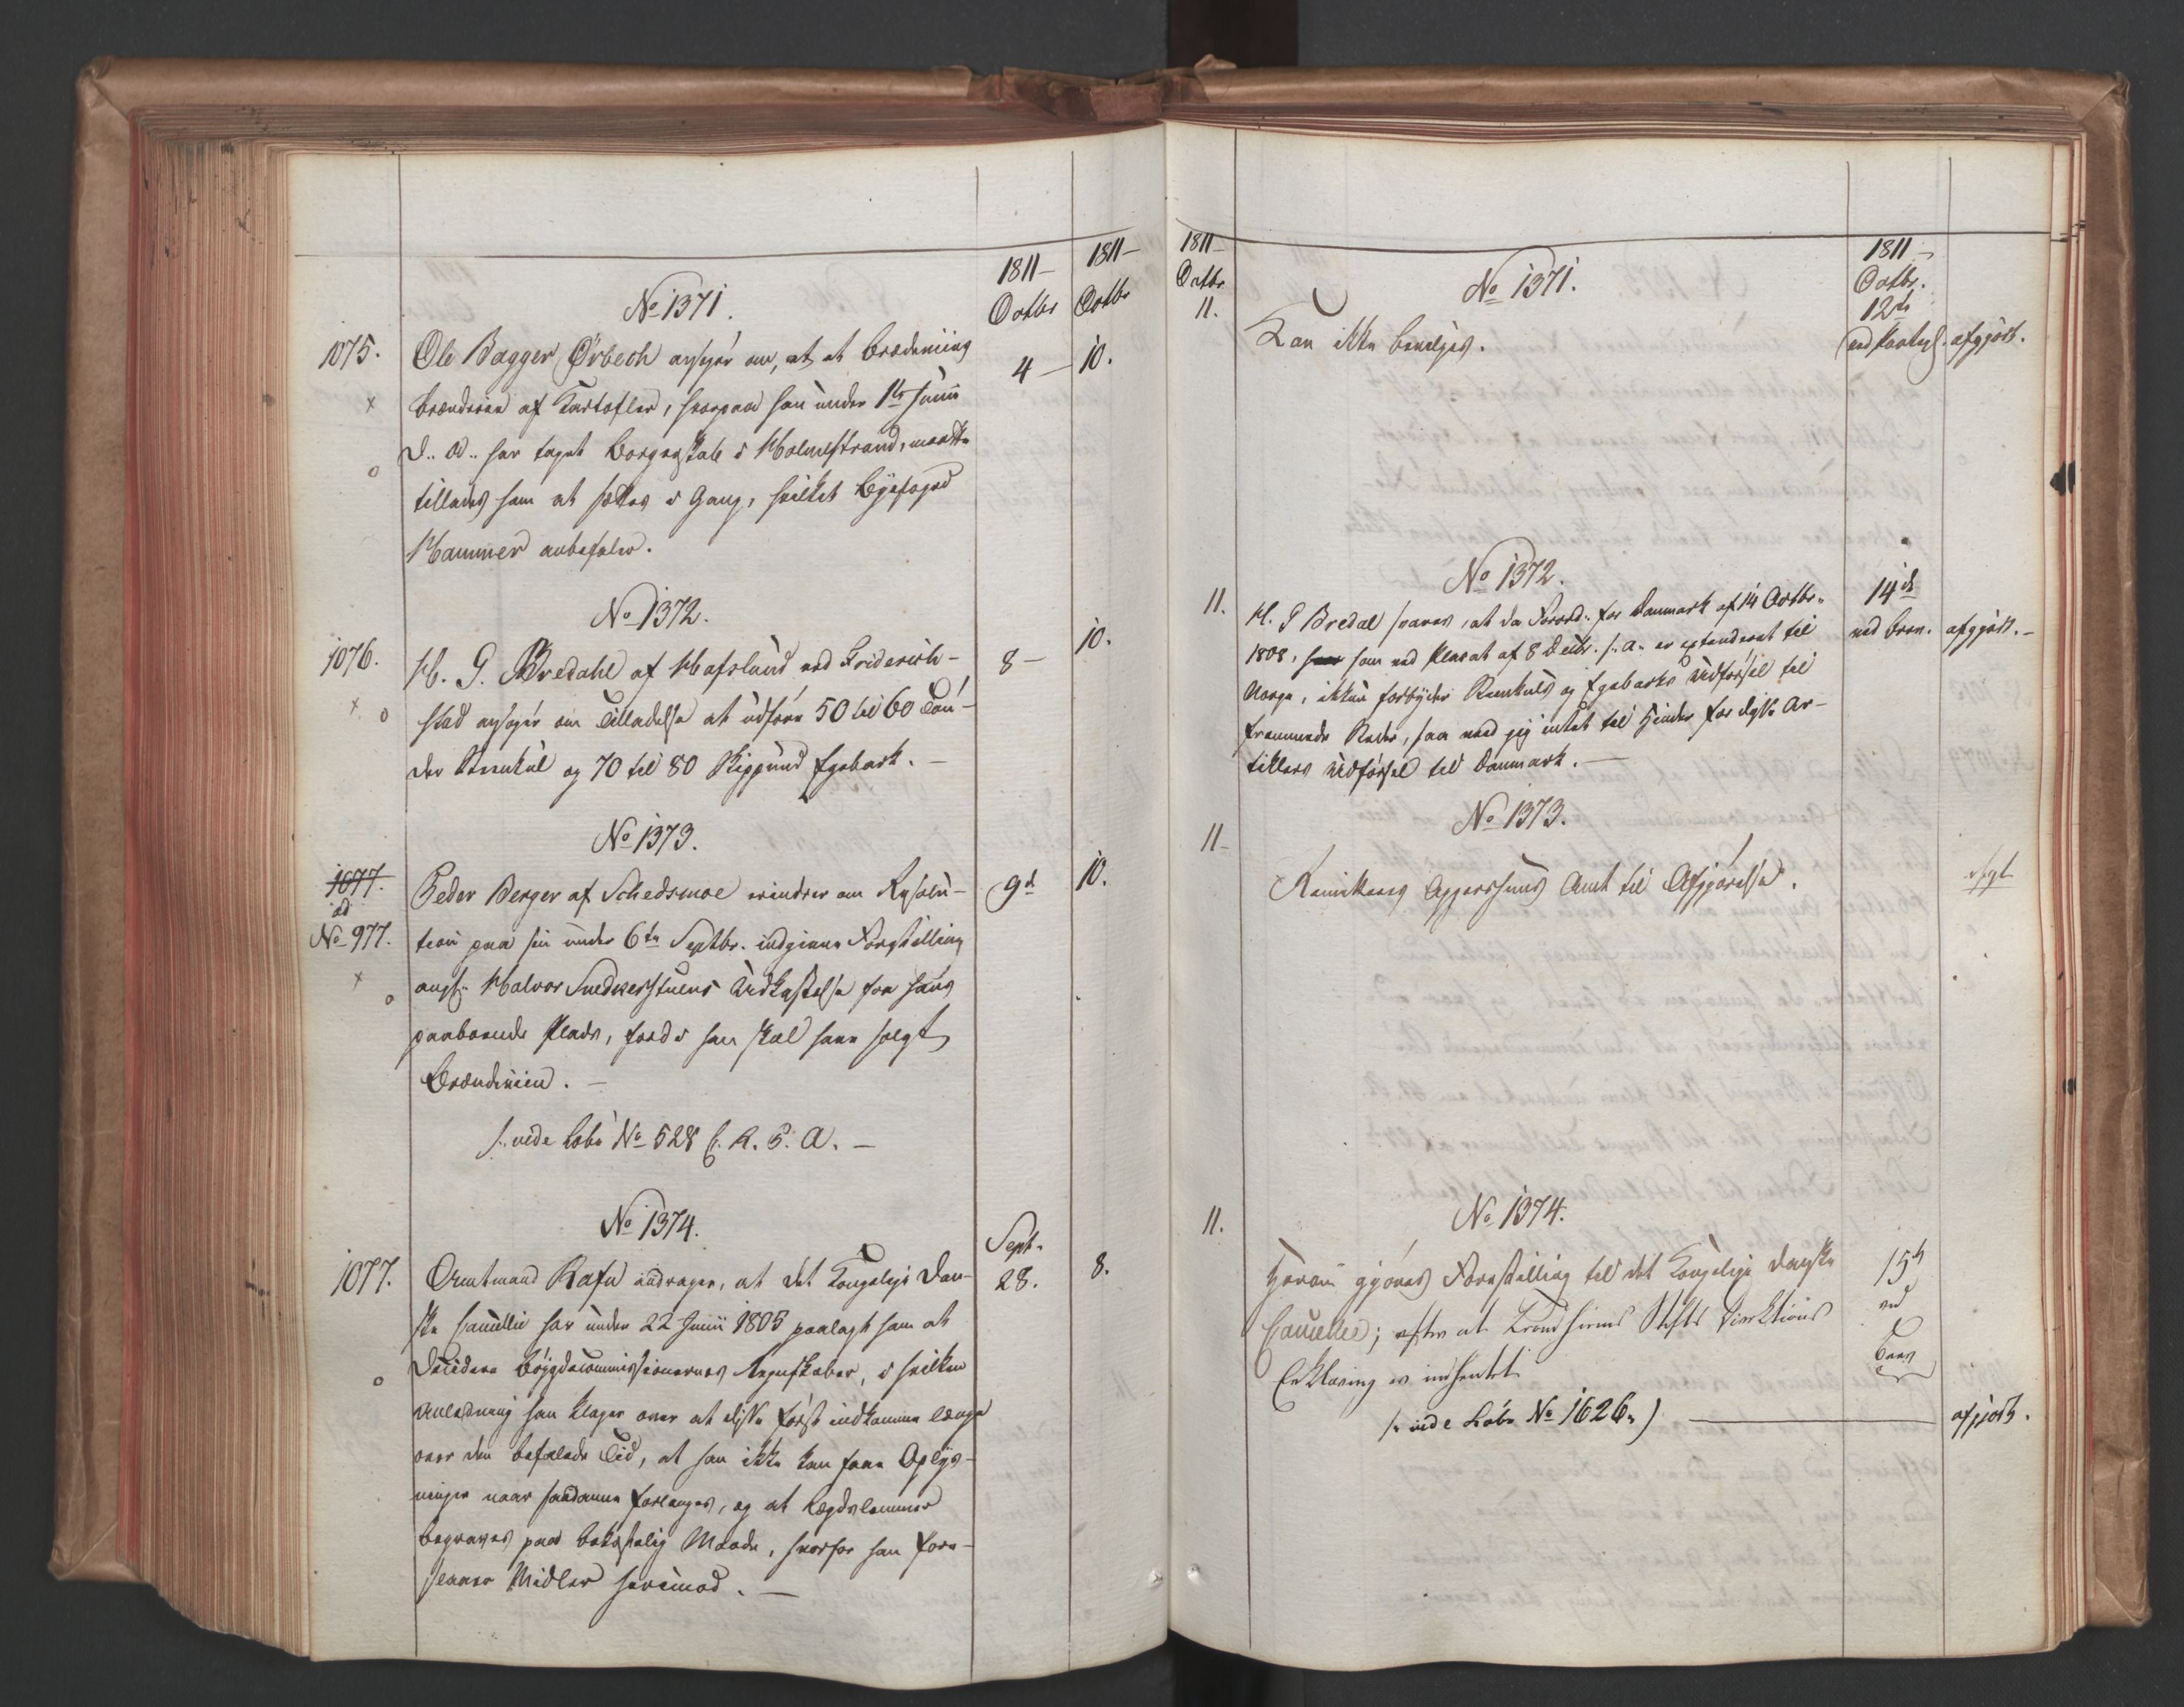 1811–
Octbr
1811–
Octbr
No 1371.
1075.
Ole Bagger Ørbech ansøger om, at et Brændeviins
4 –
10.
Brænderie af Kartofler, hvorpaa han under 1te Junii
d. A. har taget Borgerskab i Holmestrand, maatte
tillades ham at sættes i Gang, hvilket Byefoged
Hammer anbefaler.
No 1372.
1076.
H. G. Bredahl af Hafslund ved Friderich-
8 –
10.
stad ansøger om Tilladelse at udføre 50 til 60 Tøn-
der Beenkul og 70 til 80 Skippund Egebark. –
No 1373.
1077.
ad
No 977.
Peder Berger af Schedsmoe erindrer om Resolu-
9d
10.
tion paa sin under 6te Septbr. indgivne Forestilling
angl. Halvor Snedkerstuens Udkastelse fra hans
paaboende Plads, fordi han skal have solgt
Brændeviin. –
/: vide Løbe No 528 C. R. P. A. –
No 1374.
1077.
Sept.
28.
8.
Amtmand Rafn andrager, at det Kongelige Dan-
ske Cancellie har under 22 Junii 1805 paalagt ham at
decidere Bøygdecommissionernes Regnskaber, i hvilken
Anledning han klager over at disse først indkomme længe
over den befalede Tid, at han ikke kan faae Oplys-
ninger naar saadanne forlanges, og at Lægdslemmer
begraves paa bekostelig Maade, hvorfor han fore-
slaaer Midler herimod. –
1811–
Octbr
11.
No 1371.
1811 –
Octbr.
12te
Kan ikke bevilges.
afgjort.
No 1372.
11.
H. G Bredal svares, at da Forord. for Danmark af 14 Octbr.
14de
1808, som ved Placat af 8 Decbr. s. A. er extenderet til
ved Brev.
afgjort. –
Norge, ikkun forbyder Beenkuls og Egebarks Udførsel til
fremmede Steder, saa veed jeg intet til Hinder for disse Ar-
tiklers Udførsel til Danmark. –
No 1373.
11–
Remitteres Aggershuus Amt til Afgjørelse.
No 1374.
11.
Herom gjøres Forestilling til det Kongelige danske
15de
ved
Brev
Cancellie; efter at Trondhiems Stifts Direktions
Erklæring er indhentet
/: vide Løbe No 1626.)
afgjort.